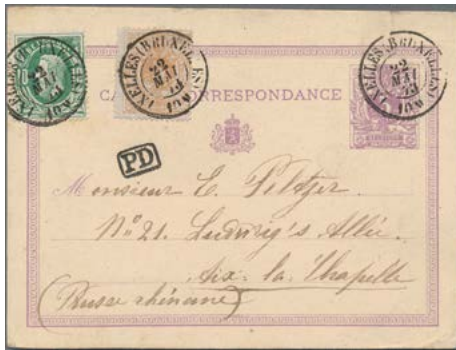 IXELLES (BRUXELLES)
22
MAI
10
IXELLES (BRUXELLES)
22
MAI
IXELLES (BRUXELLES)
22
MAI
CARTE CORRESPONDANCE
PD
Monsieur E. Peltzer
No 21. Ludwig's Allée.
Aix-la-Chapelle
(Prusse rhénane)